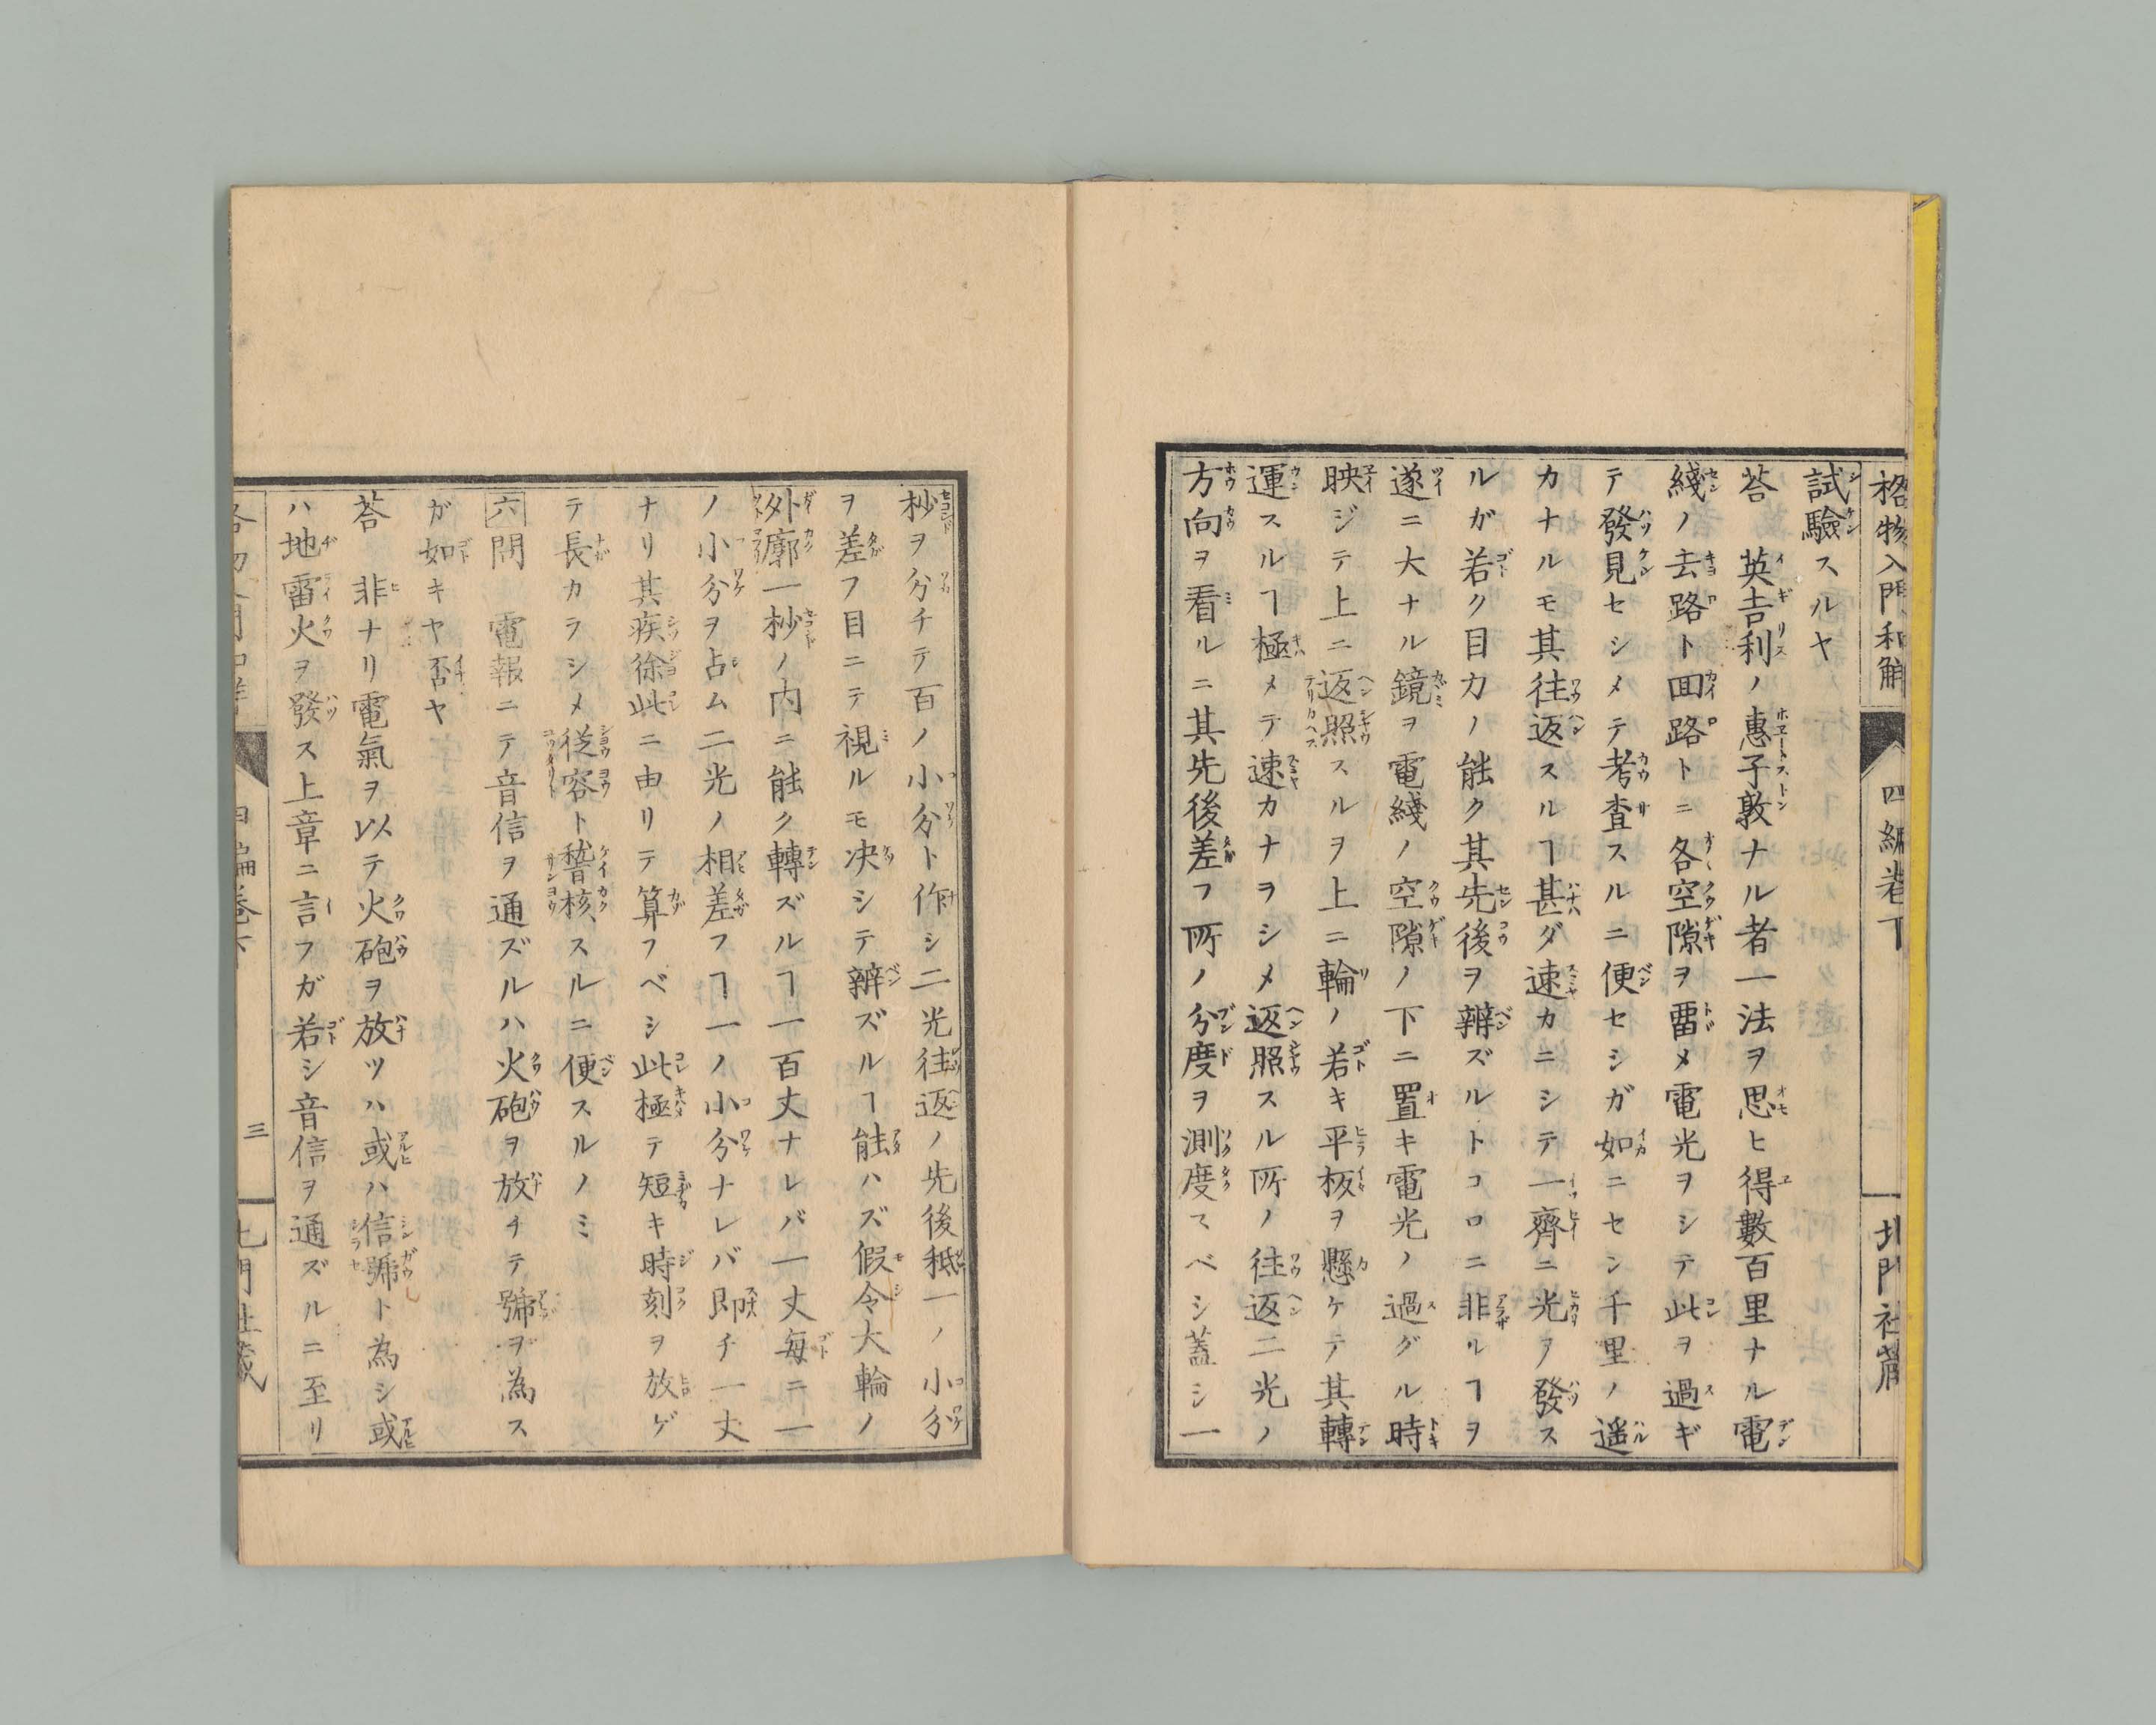 格物入門和解
四編卷下
北門社藏
試驗スルヤ
荅　英吉利ノ惠子敦ナル者一法ヲ思ヒ得數百里ナル電
綫ノ去路ト回路トニ各空隙ヲ畱メ電光ヲシテ此ヲ過ギ
テ發見セシメテ考査スルニ便セシガ如ニセシ千里ノ遥
カナルモ其往返スルヿ甚ダ速カニシテ一齊ニ光ヲ發ス
ルガ若ク目力ノ能ク其先後ヲ辨ズルトコロニ非ルヿヲ
遂ニ大ナル鏡ヲ電綫ノ空隙ノ下ニ置キ電光ノ過グル時
映ジテ上ニ返照スルヲ上ニ輪ノ若キ平板ヲ懸ケテ其轉
運スルヿ極メテ速カナヲシメ返照スル所ノ往返二光ノ
方向ヲ看ルニ其先後差フ所ノ分度ヲ測度スベシ蓋シ一
杪ヲ分チテ百ノ小分ト作シ二光往返ノ先後秪一ノ小分
ヲ差フ目ニテ視ルモ决シテ辨ズルヿ能ハズ假令大輪ノ
外廓一杪ノ内ニ能ク轉ズルヿ一百丈ナレバ一丈毎ニ一
ノ小分ヲ占ム二光ノ相差フヿ一ノ小分ナレバ即チ一丈
ナリ其疾徐此ニ由リテ算フベシ此極テ短キ時刻ヲ放ゲ
テ長カラシメ従容ト稽核スルニ便スルノミ
六問　電報ニテ音信ヲ通ズルハ火砲ヲ放チテ號ヲ為ス
ガ如キヤ否ヤ
荅　非ナリ電氣ヲ以テ火砲ヲ放ツハ或ハ信號ト為シ或
ハ地雷火ヲ發ス上章ニ言フガ若シ音信ヲ通ズルニ至リ
三